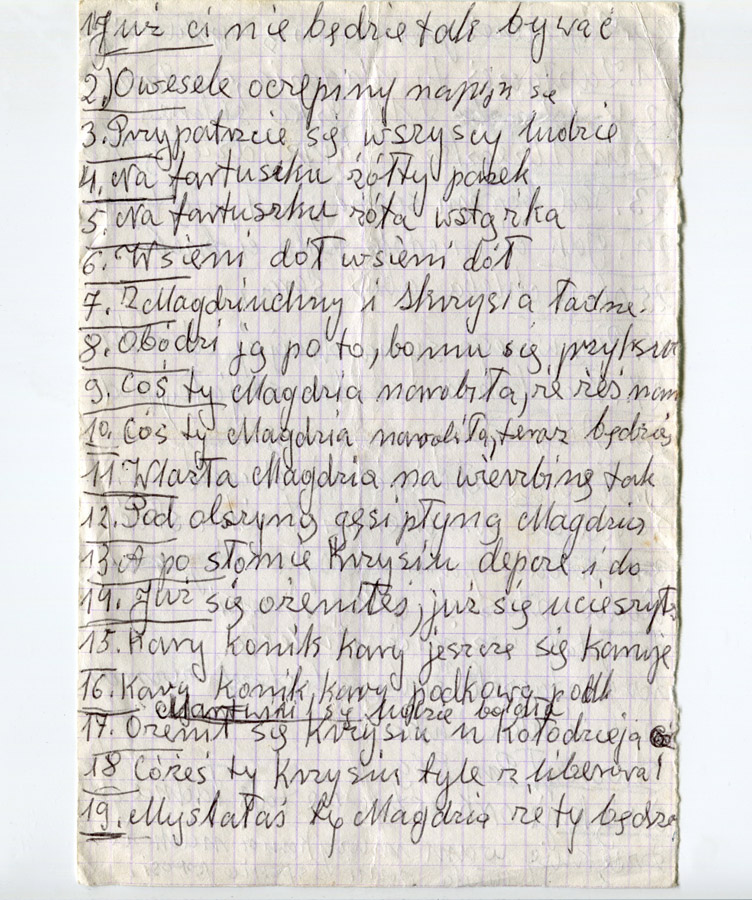 1) Już ci nie będzie tak bywać
2) Owesele oczepiny napijn się
3. Przypatrzcie się wszyscy ludzie
4. Na fartuszku żółty pasek
5. Na fartuszku żóta wstązka
6. Wsieni dół wsieni dół
7. Z Magdziuchny i skrzysia ładne
8. Obódzi ją po to, bo mu się przyksz
9. Coś ty Magdzia narobiła, że żeś nam
10. Cóś ty Magdzia narobiła, teraz będzies
11. Wlazła Magdzia na wierzbinę tak
12. Pod olszyną gęsi płyną Magdzia
13 A po słómie Krzysiu depce i do
14. Już się ożeniłeś, już się ucieszył
15. Kary konik kary jeszcze się
16. Kary konik, kary podkową
się ludzie
17. Ożenił się Krzysiu u Kołodzieja
18 Cóżeś ty Krzysiu tyle
19. Myślałaś ty Magdzia że ty będze